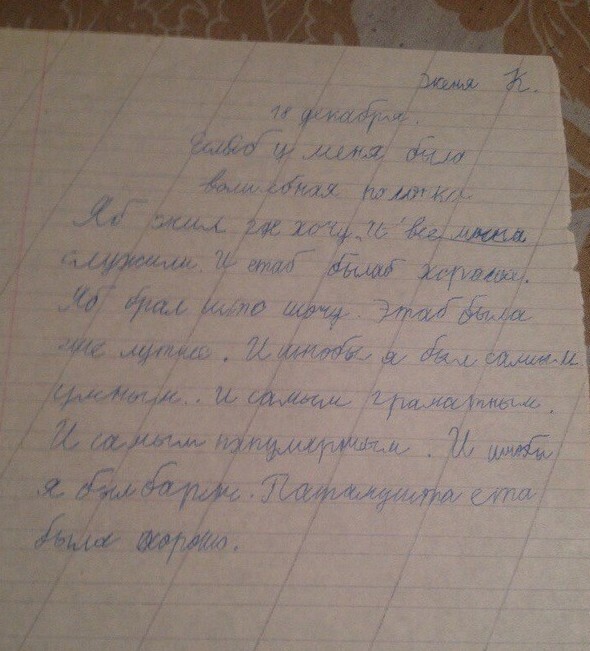 Женя К.
18 декабря.
Еслиб у меня была
волшебная палочка
Яб жил где хочу. И все меня
служили. И етаб былаб хорашо.
Яб брал што хочу. Этаб была
мне лутше. И штобы я был самым
умным. И самым граматным.
И самым папулярным. И штобы
я был барин. Патамушта ета
была хорошо.